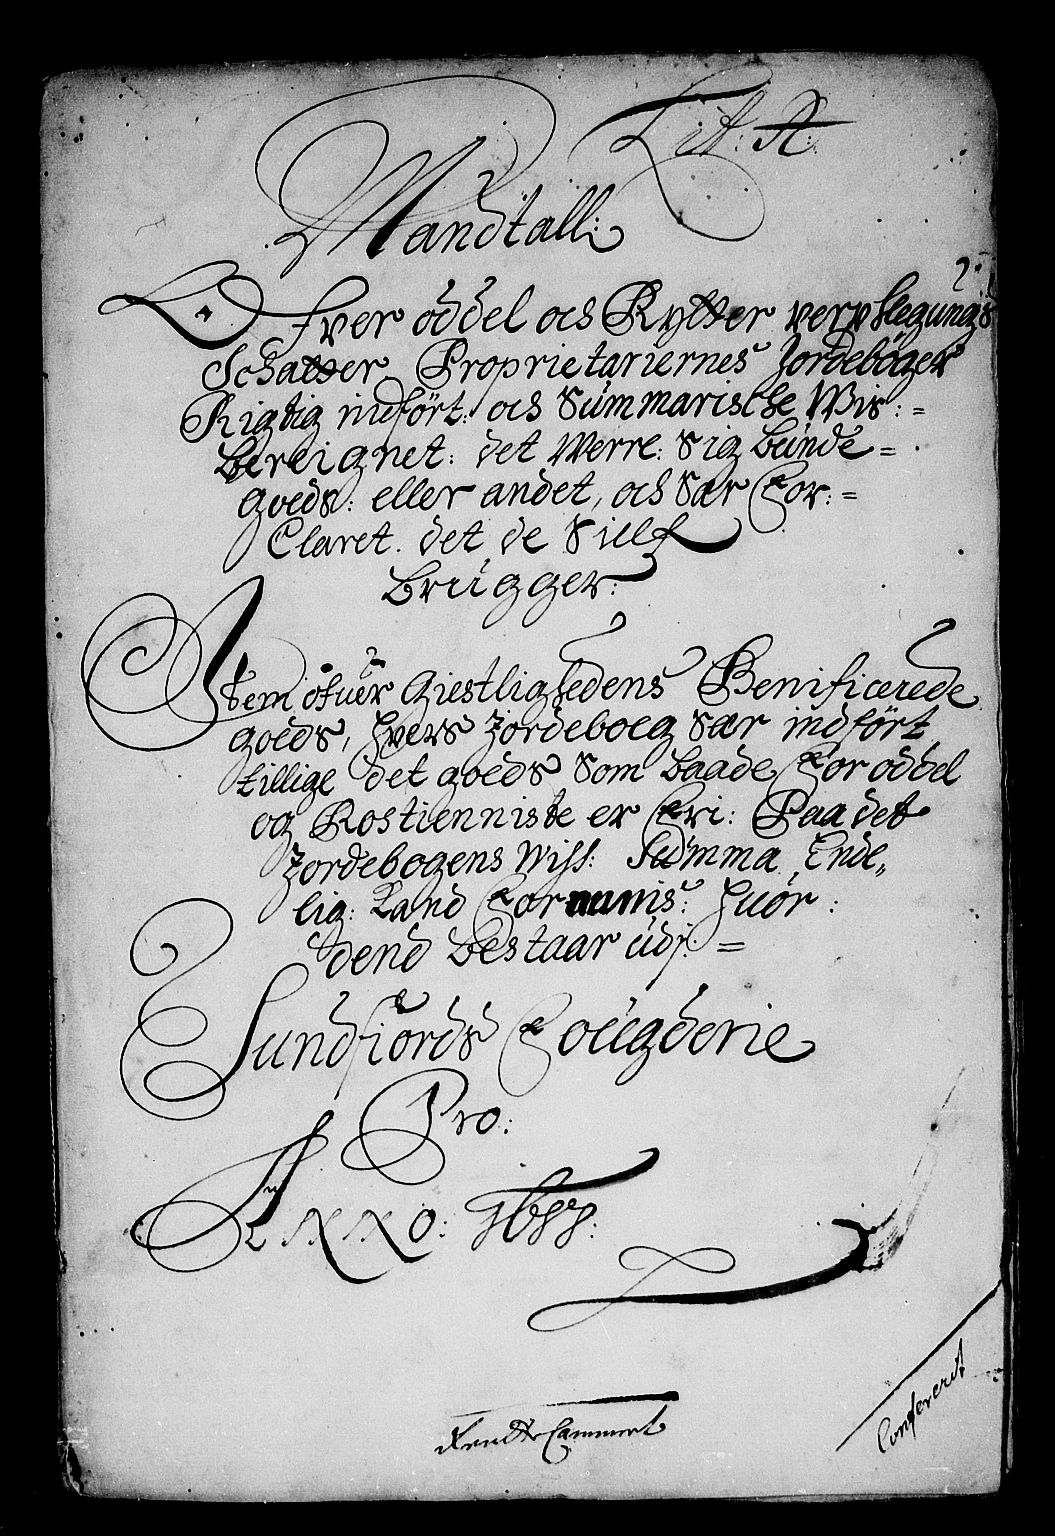 Lit: A:
Mandtall:
Ofver oddel och Rytter verpflegungs
Schatter Proprietariernes Jordebøger
Rigtig indført: och Summarische Wis:=
bereignet: det Werre: sig bunde=
goeds: eller andet, och sær For:=
Claret. det de sillf
brugger:
Item ofuer Giestlighedens Benificerede
goeds, hvers Jordeboeg sær indført
tillige det goeds som baade for oddel
og Rostienniste er fri: Paa det
Jordebogens Wiss: Summa, Ende,,
lig: Kand fornumis: huor:
dend bestaar udj. =
Sundfiords Fougderie
Pro:
Anno: 1688:
Rendte Cammeret
Confererit